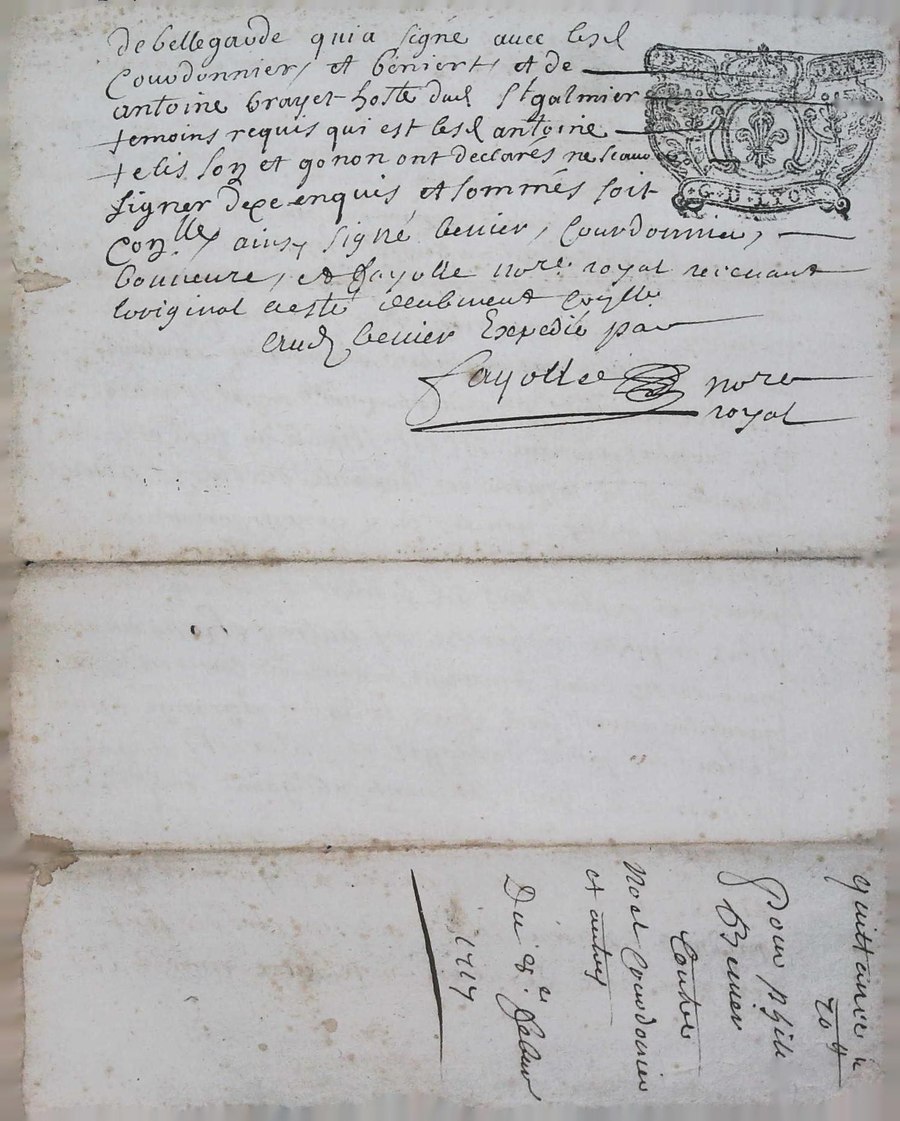 debellegarde qui a signé avec lesd
Courdonnier, et béniert, et de
antoine brayet hoste dud St galmier
temoins requis qui est lesd antoine
telis son et gonon ont declarés ne scavoir
signer de ce enquis et sommés soit
conlle, ainsy signé benier, Courdonnier,
bonneure, et fayolle nore royal recevant
loriginal reste deubment coylle
aud benier Expedié par
fayolle nore
royal
G. D. LYON
quittance
Pour Phili
Benier
Contre
Noel Courdonier
et autres
Du 8e
1717